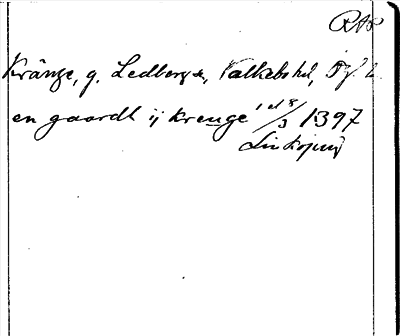 RAP
Kränge, g. Ledbergs, Valkebo hd, Ög.
en gaardh ij krenge 1/3 1397
Linköping